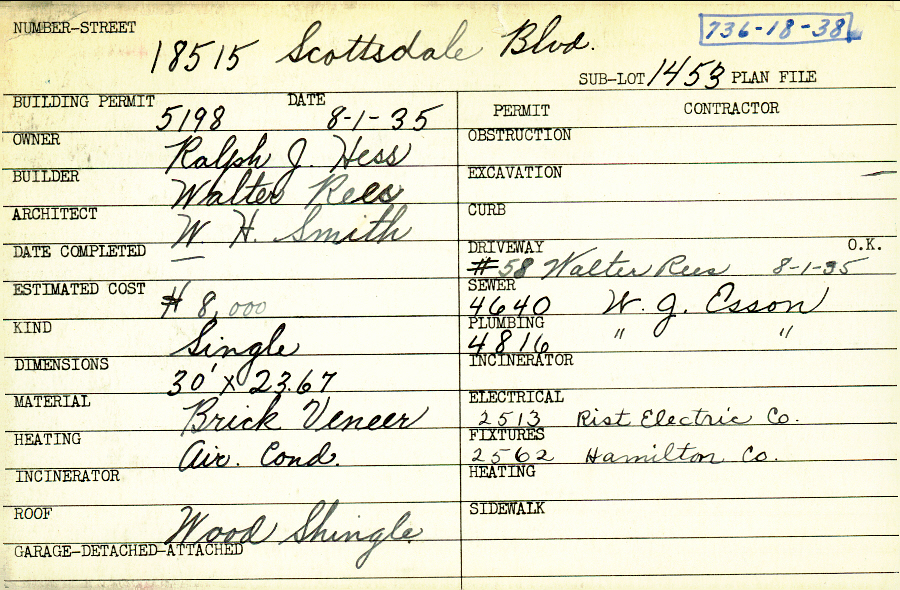 NUMBER-STREET 18515 Scottsdale Blvd. 736-18-38
SUB-LOT 1453 PLAN FILE
BUILDING PERMIT 5198 DATE 8-1-35
OWNER Ralph J. Hess
BUILDER Walter Rees
ARCHITECT W. H. Smith
DATE COMPLETED —
ESTIMATED COST $ 8,000
KIND Single
DIMENSIONS 30' x 23.67
MATERIAL Brick Veneer
HEATING Air. Cond.
INCINERATOR
ROOF Wood Shingle
GARAGE-DETACHED-ATTACHED
PERMIT CONTRACTOR
OBSTRUCTION
EXCAVATION —
CURB
DRIVEWAY O.K.
#58 Walter Rees 8-1-35
SEWER
4640 W. J. Esson
PLUMBING
4816 " "
INCINERATOR
ELECTRICAL
2513 Rist Electric Co.
FIXTURES
2562 Hamilton Co.
HEATING
SIDEWALK